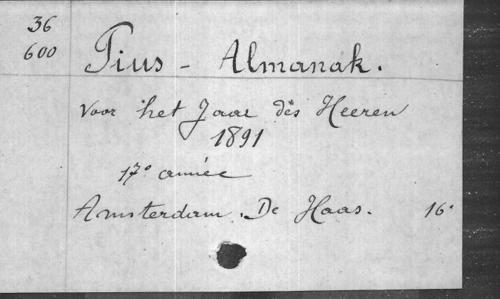 36
600
Pius - Almanak.
voor het Jaar des Heeren
1891
17e année
Amsterdam. De Haas. 16°